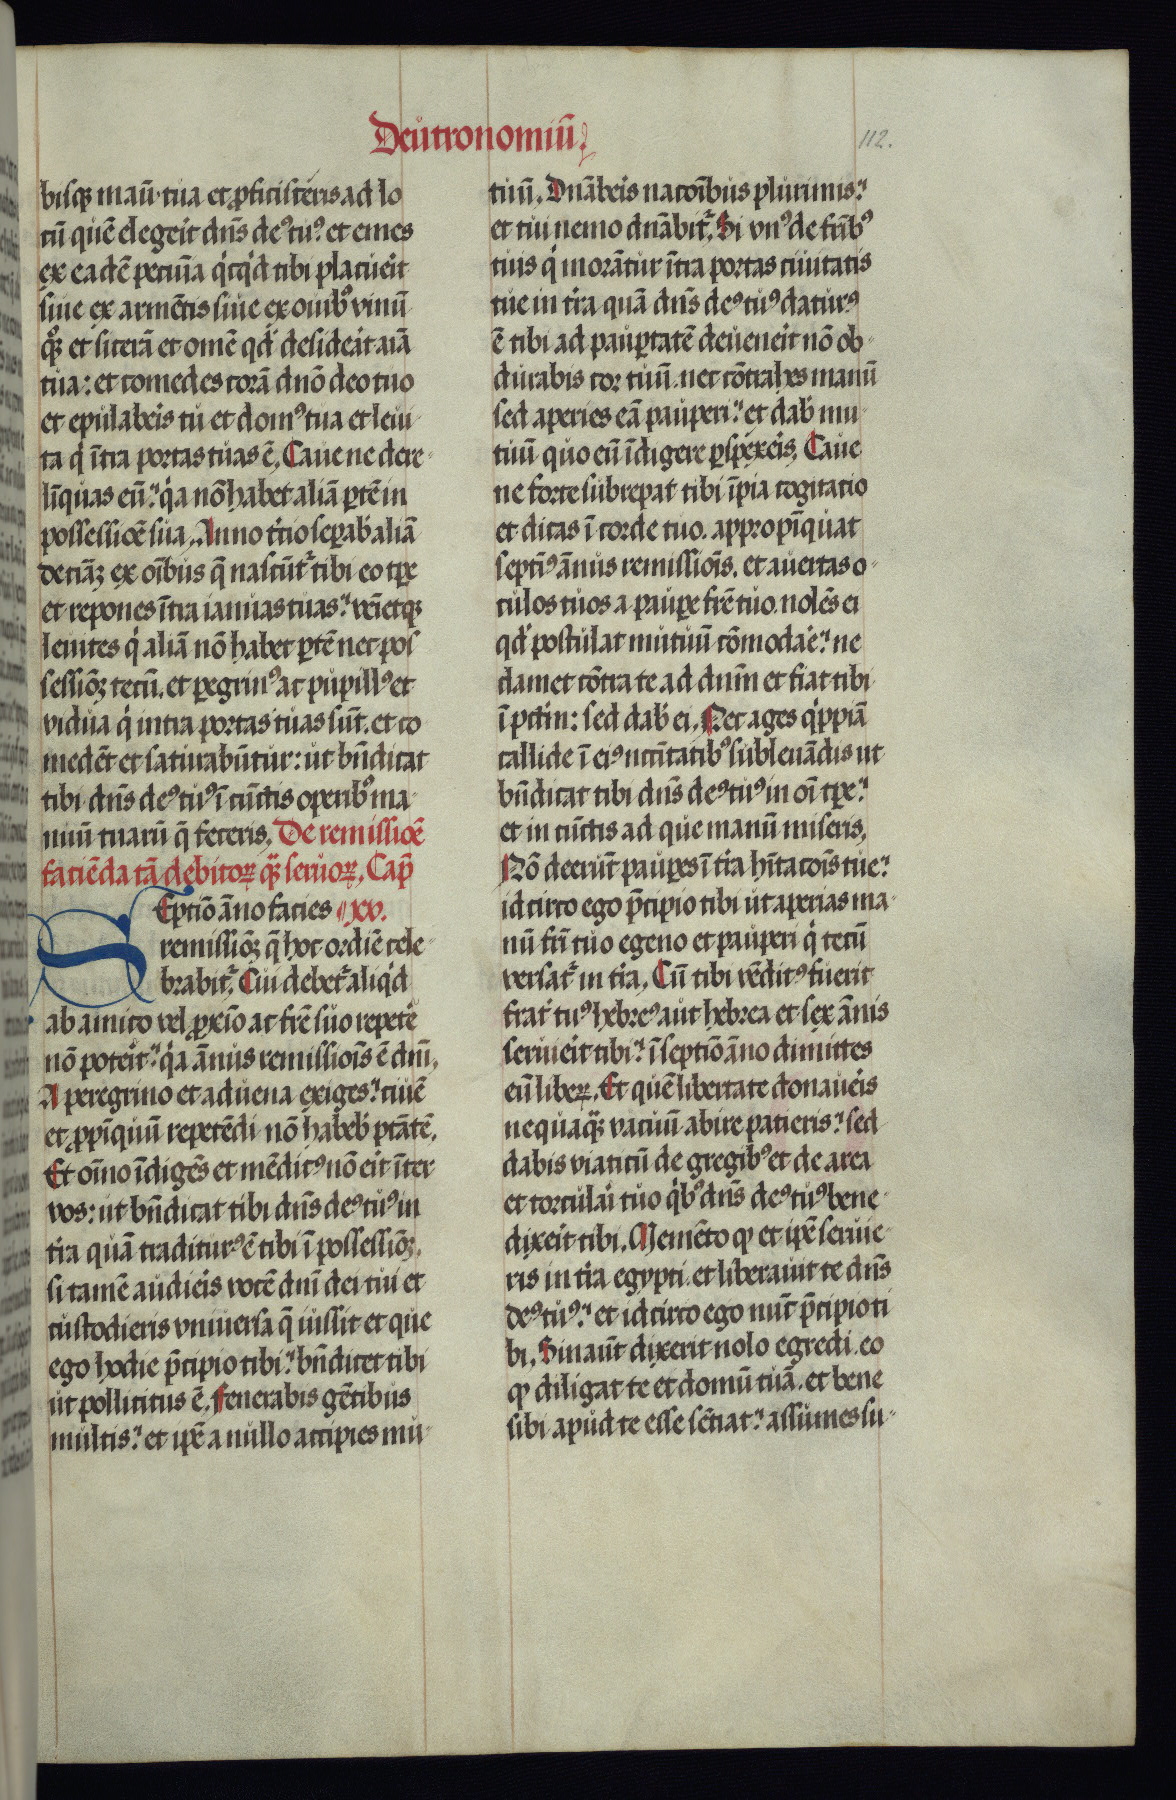 Deutronomiū
112.
bisq; manu tua et ꝓficisceris ad lo
cū quē elegeit dn̄s deꝰ tuꝰ et emes
ex eadē pecunia qͥcqͥd tibi placueit
siue ex armētis siue ex ouibꝰ vinū
qͦq; et sicerā et omē qd desideat aīa
tua: et comedes corā dn̄o deo tuo
et epulabeis tu et domꝰ tua et leui-
ta qͥ ītra portas tuas ē. Caue ne dere-
līquas eū: qͥa nō habet aliā ꝑtē in
possessiōe sua. Anno tͥcio seꝑab aliā
deciāꝫ ex oībus q̄ nascūtͬ tibi eo tꝑe
et repones ītra ianuas tuas: veīetq;
leuites qͥ aliā nō habet ꝑtē nec pos
sessiōeꝫ tecū. et ꝑegrinꝰ ac pupillꝰ et
vidua qͥ intra portas tuas sūt. et co
medēt et saturabūtur: ut bn̄dicat
tibi dn̄s deꝰ tuꝰ ī cūctis operibꝰ ma-
nuū tuarū q̄ feceris. De remissiōe
faciēda tā debitoꝝ qͣꝫ seruoꝝ. Cap̄
Eptīo āno facies xv.
remissiōeꝫ q̄ hoc ordīe cele-
brabitͬ. Cui debetͬ aliqͥd
ab amico vel ꝓxīo ac fr̄e suo repetē
nō poteit: qͥa ānus remissiōis ē dn̄i.
A peregrino et aduena exiges: ciuē
et ꝓpīquū repetēdi nō habeb ptātē.
Et oīno īdigēs et mēdicꝰ nō eit īter
vos: ut bn̄dicat tibi dn̄s deꝰ tuꝰ in
tīra quā traditurꝰ ē tibi ī possessiōeꝫ.
si tamē audieis vocē dn̄i dei tui et
custodieris vniuersa q̄ iussit et que
ego hodie p̄cipio tibi: bn̄dicet tibi
ut pollicitus ē. Fenerabis gētibus
multis: et ip̄e a nullo accipies mu-
tuū. Dn̄abeis nacoībus plurimis:
et tui nemo dn̄abitͬ. Si vnꝰ de fr̄ibꝰ
tuis qͥ morātur ītra portas ciuitatis
tue in tīra quā dn̄s deꝰ tuꝰ daturꝰ
ē tibi ad pauꝑtatē deueneit nō ob-
durabis cor tuū. nec cōtrahes manū
sed aperies eā pauperi: et dab mu-
tuū quo eū īdigere ꝑspexeis. Caue
ne forte subrepat tibi īpia cogitatio
et dicas ī corde tuo. appropīquat
septīꝰ ānus remissiōis. et auertas o-
culos tuos a pauꝑe fr̄e tuo. nolēs ei
qd postulat mutuū cōmodare: ne
clamet cōtra te ad dn̄m et fiat tibi
ī pctm̄: sed dab ei. Nec ages qͥppiā
callide ī eiꝰ necītatibꝰ subleuādis ut
bn̄dicat tibi dn̄s deꝰ tuꝰ in oī tꝑe:
et in cūctis ad que manū miseris.
Nō deerūt pauꝑes ī tīra hītacoīs tue:
idcirco ego p̄cipio tibi ut aperias ma-
nū fr̄i tuo egeno et pauperi qͥ tecū
versatͬ in tīra. Cū tibi vēditꝰ fuerit
frat tuꝰ hebreꝰ aut hebrea et sex ānis
serueit tibi: ī septīo āno dimittes
eū libeꝝ. Et quē libertate donaueis
nequaqͣꝫ vacuū abire patieris: sed
dabis viaticū de gregibꝰ et de area
et torculai tuo qͥbꝰ dn̄s deꝰ tuꝰ bene-
dixeit tibi. Memēto ꝙ et ip̄e seruie-
ris in tīra egypti. et liberauit te dn̄s
deꝰ tuꝰ: et idcirco ego nūc p̄cipio ti
bi. Sin aūt dixerit nolo egredi. eo
ꝙ diligat te et domū tuā. et bene
sibi apud te esse sētiat: assumes su-